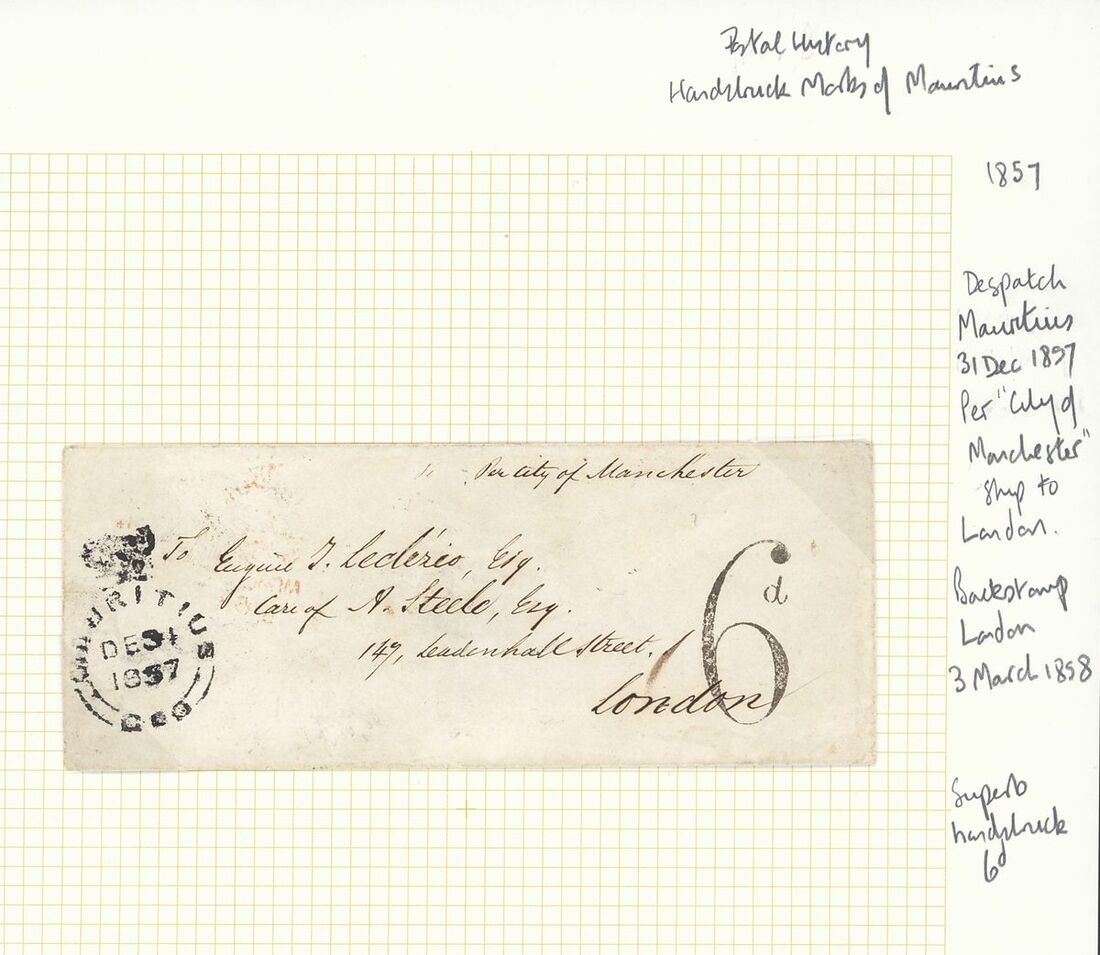 Postal History
Handstruck Marks of Mauritius
1857
Despatch
Mauritius
31 Dec 1857
Per "City of
Manchester"
Ship to
London.
Backstamp
London
3 March 1858
Superb
handstruck
6d
Per City of Manchester
To Eugène I. Leclézio, Esq.
Care of A. Steele, Esq.
147, Leadenhall Street.
London
6d
MAURITIUS
DE 31
1857
GPO